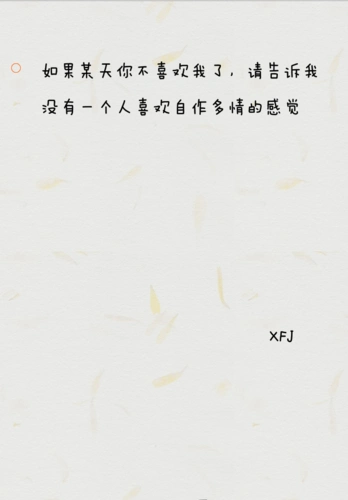 如果某天你不喜欢我了，请告诉我
没有一个人喜欢自作多情的感觉
XFJ